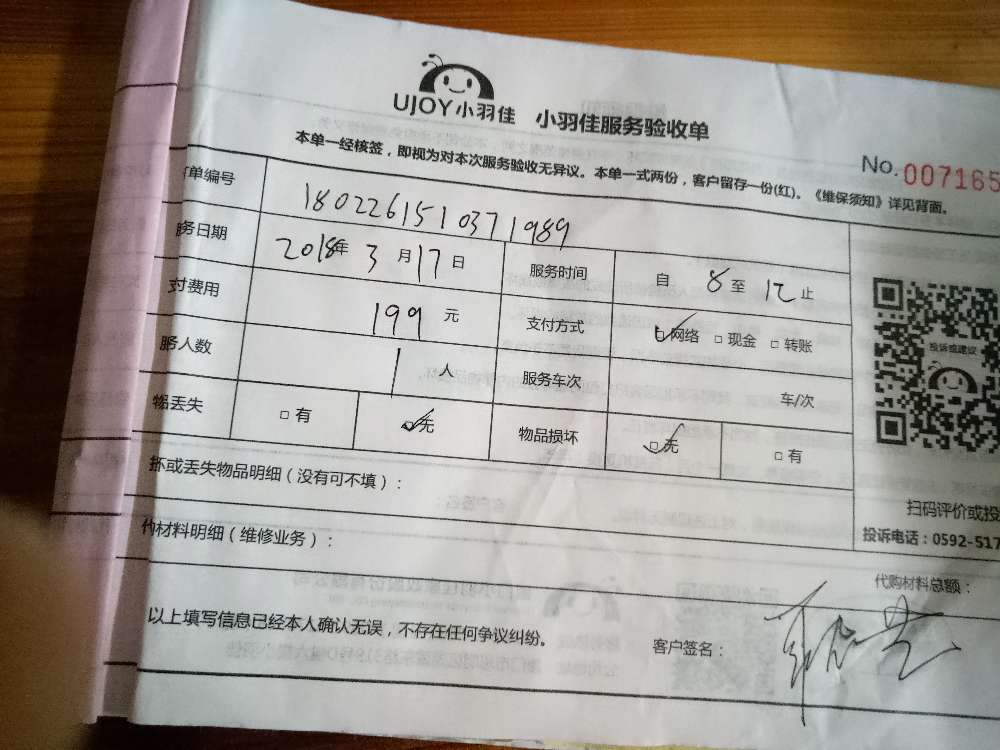 UJOY小羽佳 小羽佳服务验收单
No. 007165
本单一经核签，即视为对本次服务验收无异议。本单一式两份，客户留存一份(红)。《维保须知》详见背面。
单编号 1802261510371989
务日期 2018年 3月17日 服务时间 自 8 至 12 止
付费用 199 元 支付方式 ☑网络 □现金 □转账
务人数 1 人 服务车次 车/次
物品丢失 □有 ☑无 物品损坏 ☑无 □有
坏或丢失物品明细（没有可不填）：
投诉或建议
扫码评价或投
投诉电话：0592-517
材料明细（维修业务）：
代购材料总额：
以上填写信息已经本人确认无误，不存在任何争议纠纷。 客户签名：